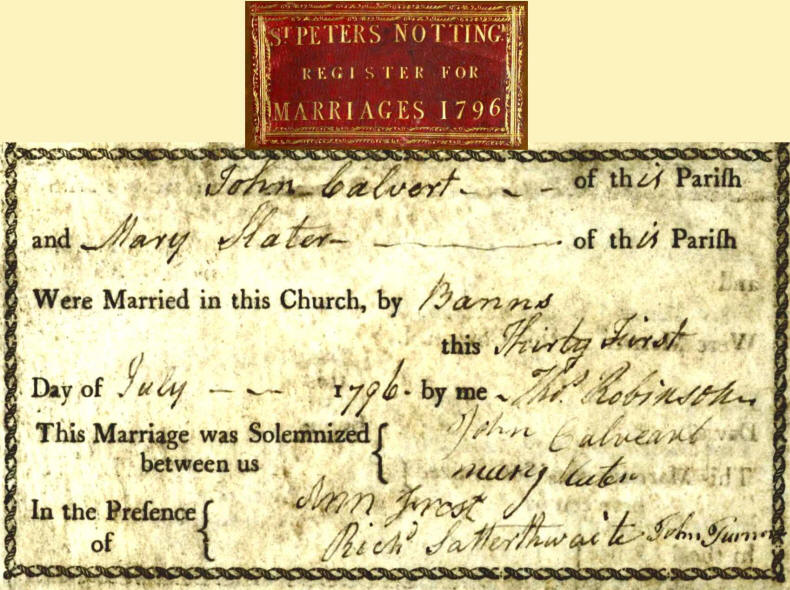 St PETERS NOTTINGm
REGISTER FOR
MARRIAGES 1796
John Calvert of this Pariſh
and Mary Slater of this Pariſh
Were Married in this Church, by Banns
this Thirty First
Day of July 1796. by me Thos. Robinson
This Marriage was Solemnized { John Calveart
between us
In the Preſence { Ann Frost
of Richd Satterthwaite John Turner